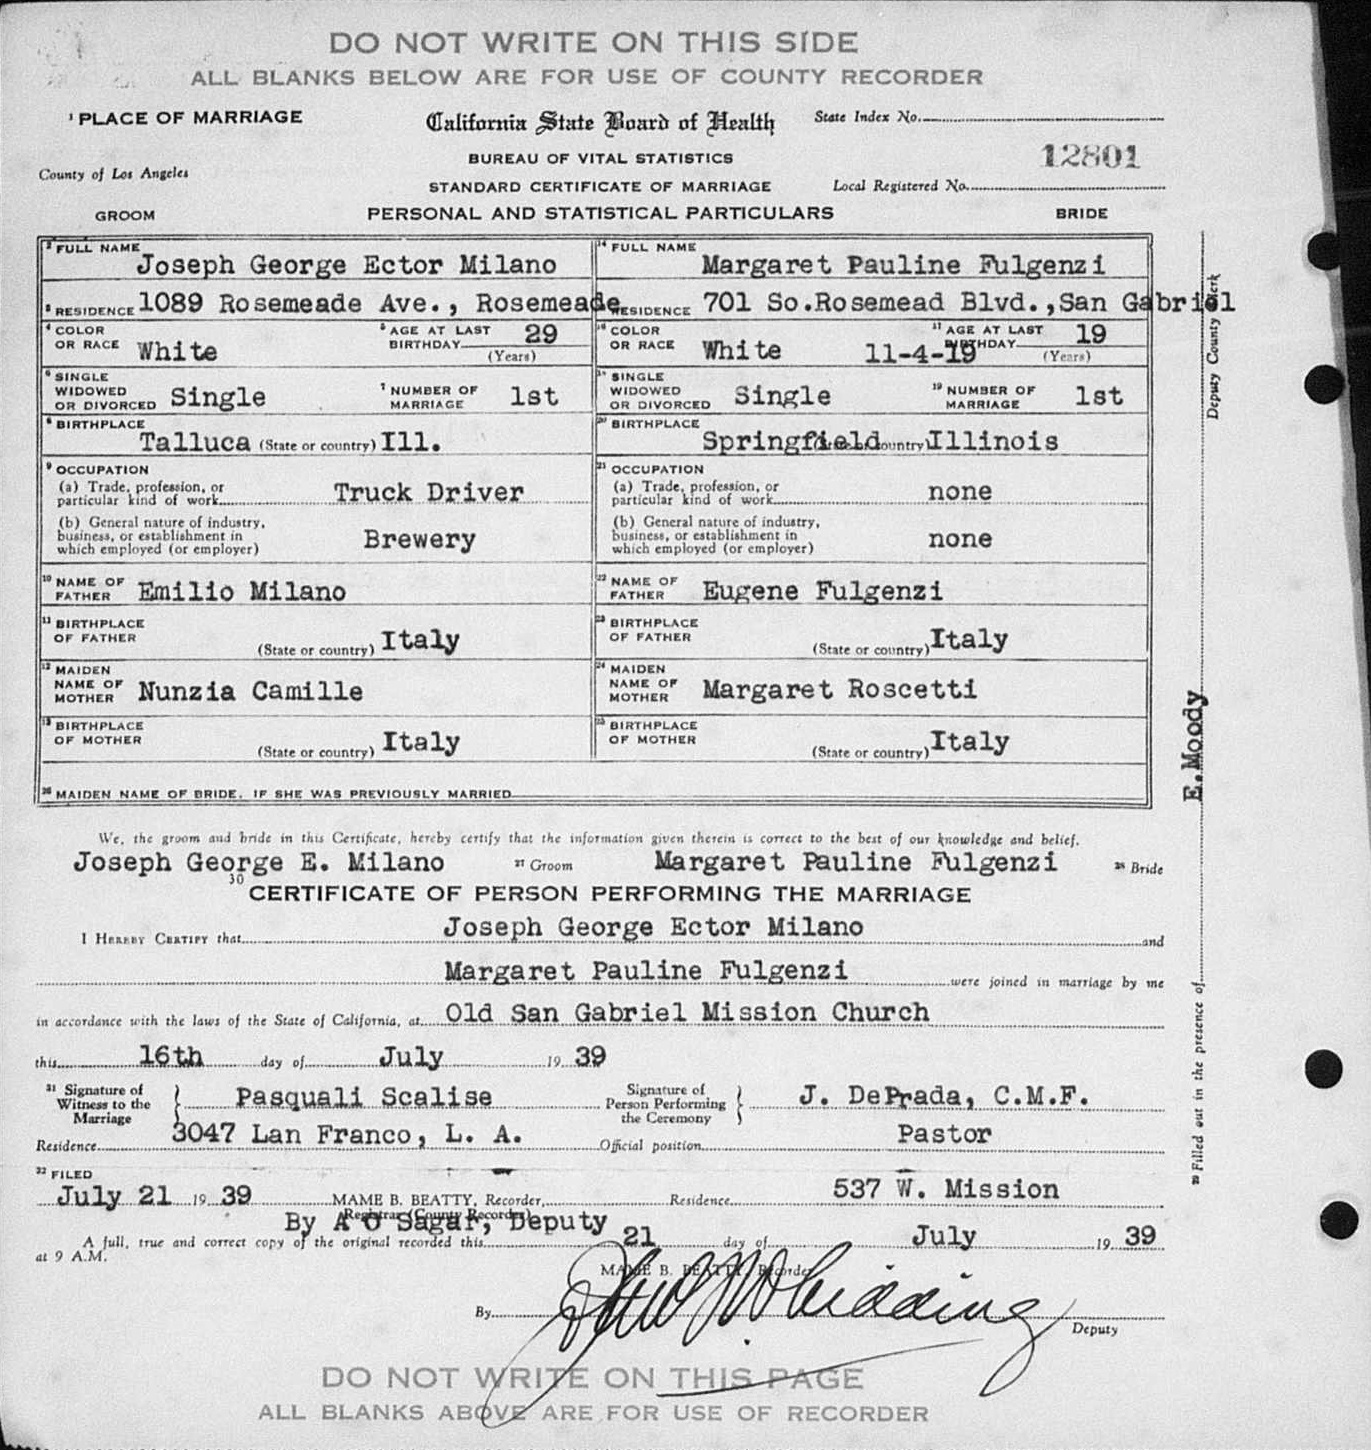 DO NOT WRITE ON THIS SIDE
ALL BLANKS BELOW ARE FOR USE OF COUNTY RECORDER
1 PLACE OF MARRIAGE California State Board of Health State Index No.
BUREAU OF VITAL STATISTICS 12801
County of Los Angeles STANDARD CERTIFICATE OF MARRIAGE Local Registered No.
GROOM PERSONAL AND STATISTICAL PARTICULARS BRIDE
2 FULL NAME Joseph George Ector Milano 14 FULL NAME Margaret Pauline Fulgenzi
3 RESIDENCE 1089 Rosemeade Ave., Rosemeade RESIDENCE 701 So.Rosemead Blvd.,San Gabriel
4 COLOR OR RACE White 5 AGE AT LAST BIRTHDAY 29 (Years) 16 COLOR OR RACE White 11-4-19 17 AGE AT LAST BIRTHDAY 19 (Years)
6 SINGLE WIDOWED OR DIVORCED Single 7 NUMBER OF MARRIAGE 1st 18 SINGLE WIDOWED OR DIVORCED Single 19 NUMBER OF MARRIAGE 1st
8 BIRTHPLACE Talluca (State or country) Ill. 20 BIRTHPLACE Springfield country Illinois
9 OCCUPATION 21 OCCUPATION
(a) Trade, profession, or particular kind of work Truck Driver (a) Trade, profession, or particular kind of work none
(b) General nature of industry, business, or establishment in which employed (or employer) Brewery (b) General nature of industry, business, or establishment in which employed (or employer) none
10 NAME OF FATHER Emilio Milano 22 NAME OF FATHER Eugene Fulgenzi
11 BIRTHPLACE OF FATHER (State or country) Italy 23 BIRTHPLACE OF FATHER (State or country) Italy
12 MAIDEN NAME OF MOTHER Nunzia Camille 24 MAIDEN NAME OF MOTHER Margaret Roscetti
13 BIRTHPLACE OF MOTHER (State or country) Italy 25 BIRTHPLACE OF MOTHER (State or country) Italy
26 MAIDEN NAME OF BRIDE, IF SHE WAS PREVIOUSLY MARRIED
We, the groom and bride in this Certificate, hereby certify that the information given therein is correct to the best of our knowledge and belief.
Joseph George E. Milano 27 Groom Margaret Pauline Fulgenzi 28 Bride
30 CERTIFICATE OF PERSON PERFORMING THE MARRIAGE
I HEREBY CERTIFY that Joseph George Ector Milano and
Margaret Pauline Fulgenzi were joined in marriage by me
in accordance with the laws of the State of California, at Old San Gabriel Mission Church
this 16th day of July 19 39
31 Signature of Witness to the Marriage Pasquali Scalise Signature of Person Performing the Ceremony J. DePrada, C.M.F.
Residence 3047 Lan Franco, L. A. Official position Pastor
32 FILED
July 21 19 39 MAME B. BEATTY, Recorder, Residence 537 W. Mission
Registrar (County Recorder)
By A O Sagar, Deputy
A full, true and correct copy of the original recorded this 21 day of July 19 39
at 9 A.M.
MAME B. BEATTY, Recorder
By Deputy
DO NOT WRITE ON THIS PAGE
ALL BLANKS ABOVE ARE FOR USE OF RECORDER
29 Filled out in the presence of E. Moody Deputy County Clerk